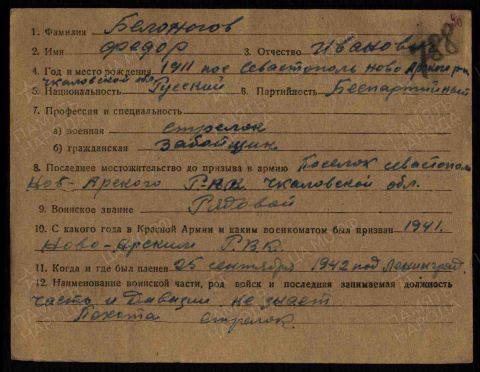 1. Фамилия Белоногов
2. Имя Федор 3. Отчество Иванович
4. Год и место рождения 1911 пос Севастополь Ново
Чкаловской обл.
5. Национальность Русский 6. Партийность Беспартийный
7. Профессия и специальность
а) военная стрелок
б) гражданская Забойщик
8. Последнее местожительство до призыва в армию Поселок севастополь
Ново-Арского Р-на Чкаловской обл.
9. Воинское звание Рядовой
10. С какого года в Красной Армии и каким военкоматом был призван 1941.
Ново-Арским Р.В.К.
11. Когда и где был пленен 25 сентября 1942 под Ленинград.
12. Наименование воинской части, род войск и последняя занимаемая должность
часть и Дивизии не знает
Пехота стрелок.